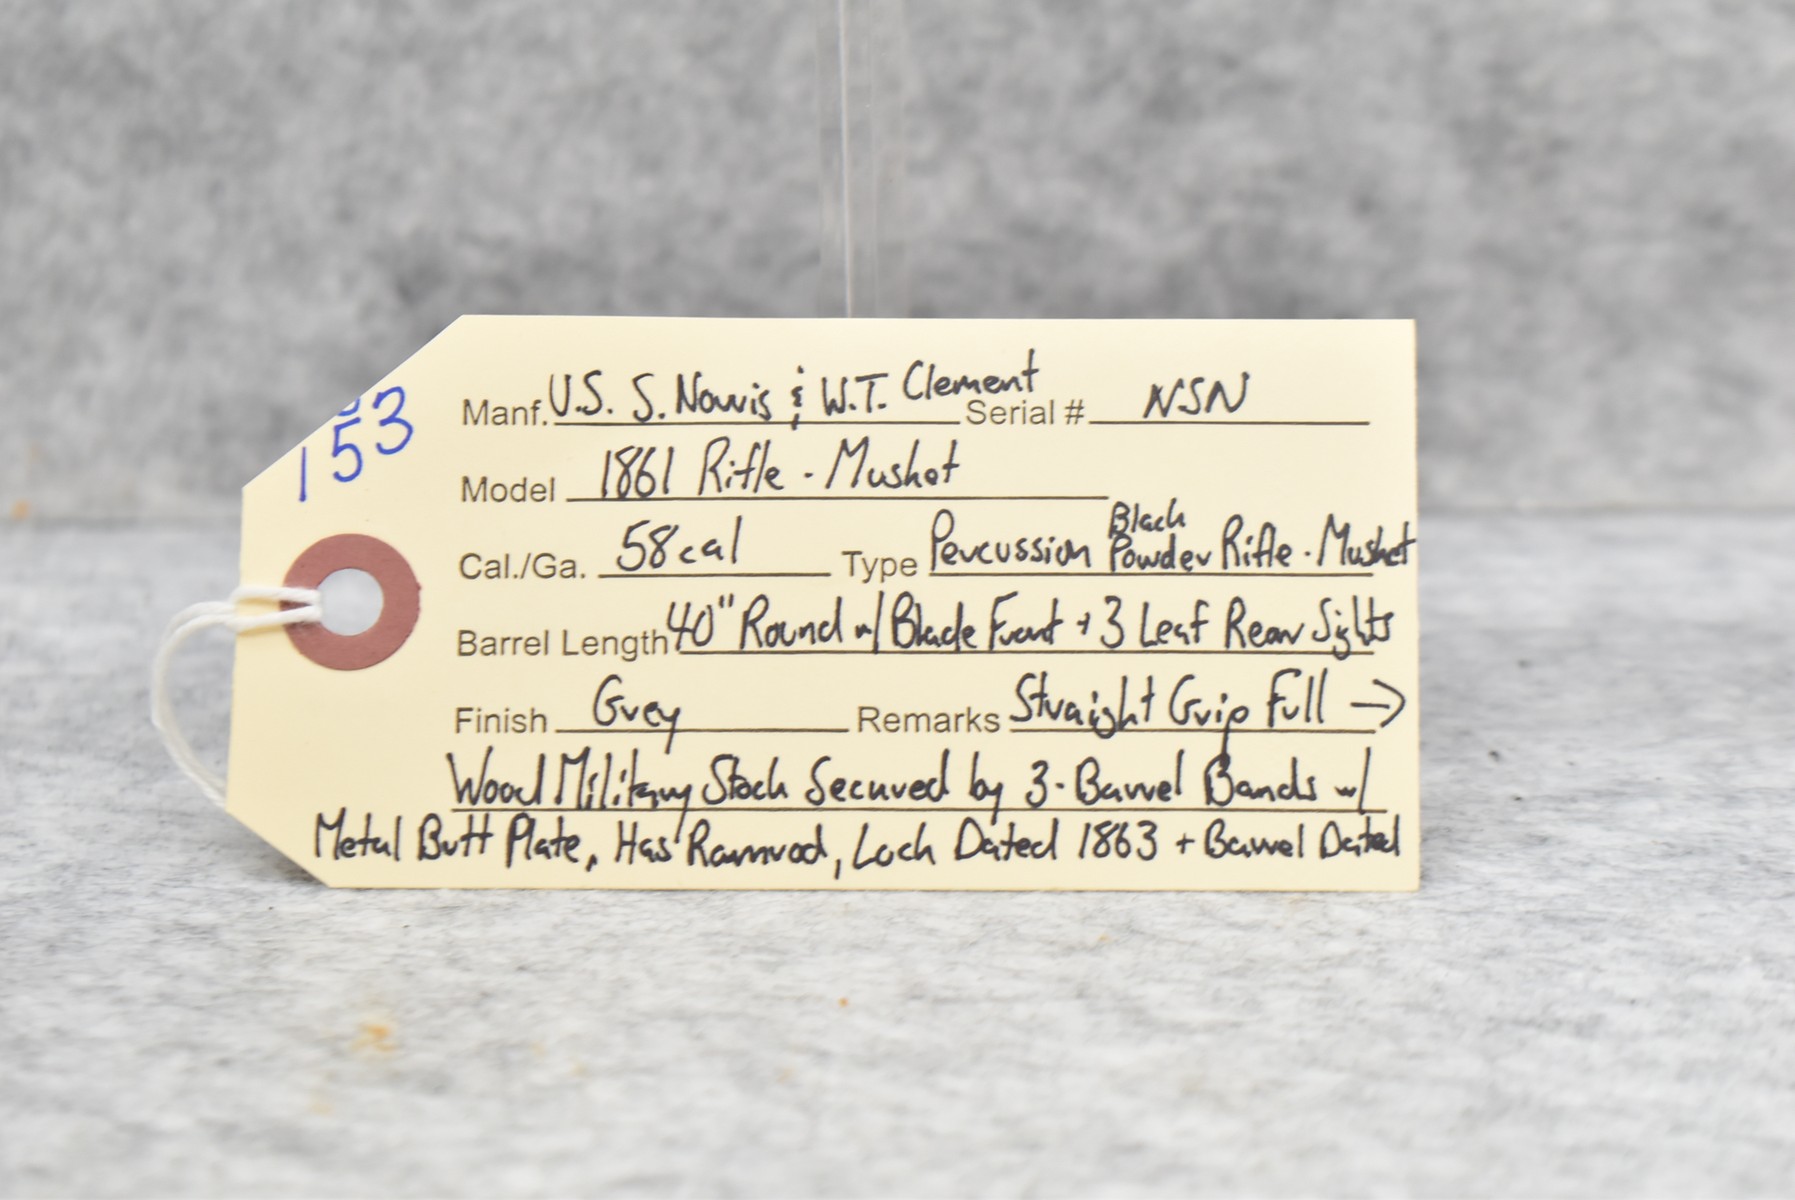 153
Manf. U.S. S. Norris & W.T. Clement Serial # NSN
Model 1861 Rifle - Musket
Cal./Ga. 58cal Type Percussion Black Powder Rifle - Musket
Barrel Length 40" Round w/ Blade Front + 3 Leaf Rear Sights
Finish Grey Remarks Straight Grip Full →
Wood Military Stock Secured by 3-Barrel Bands w/
Metal Butt Plate, Has Ramrod, Lock Dated 1863 + Barrel Dated